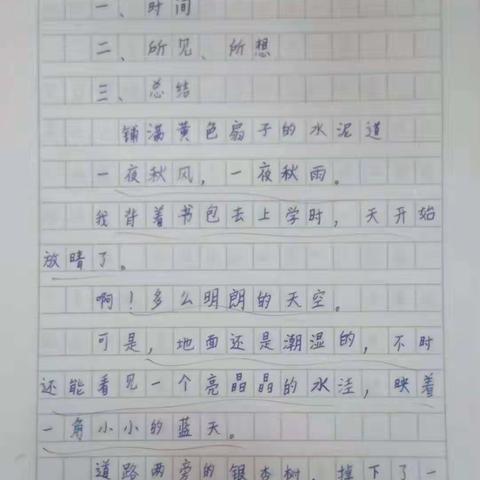 一、时间
二、所见、所想
三、总结
铺满黄色扇子的水泥道
一夜秋风，一夜秋雨。
我背着书包去上学时，天开始
放晴了。
啊！多么明朗的天空。
可是，地面还是潮湿的，不时
还能看见一个亮晶晶的水洼，映着
一角小小的蓝天。
道路两旁的银杏树，掉下了一